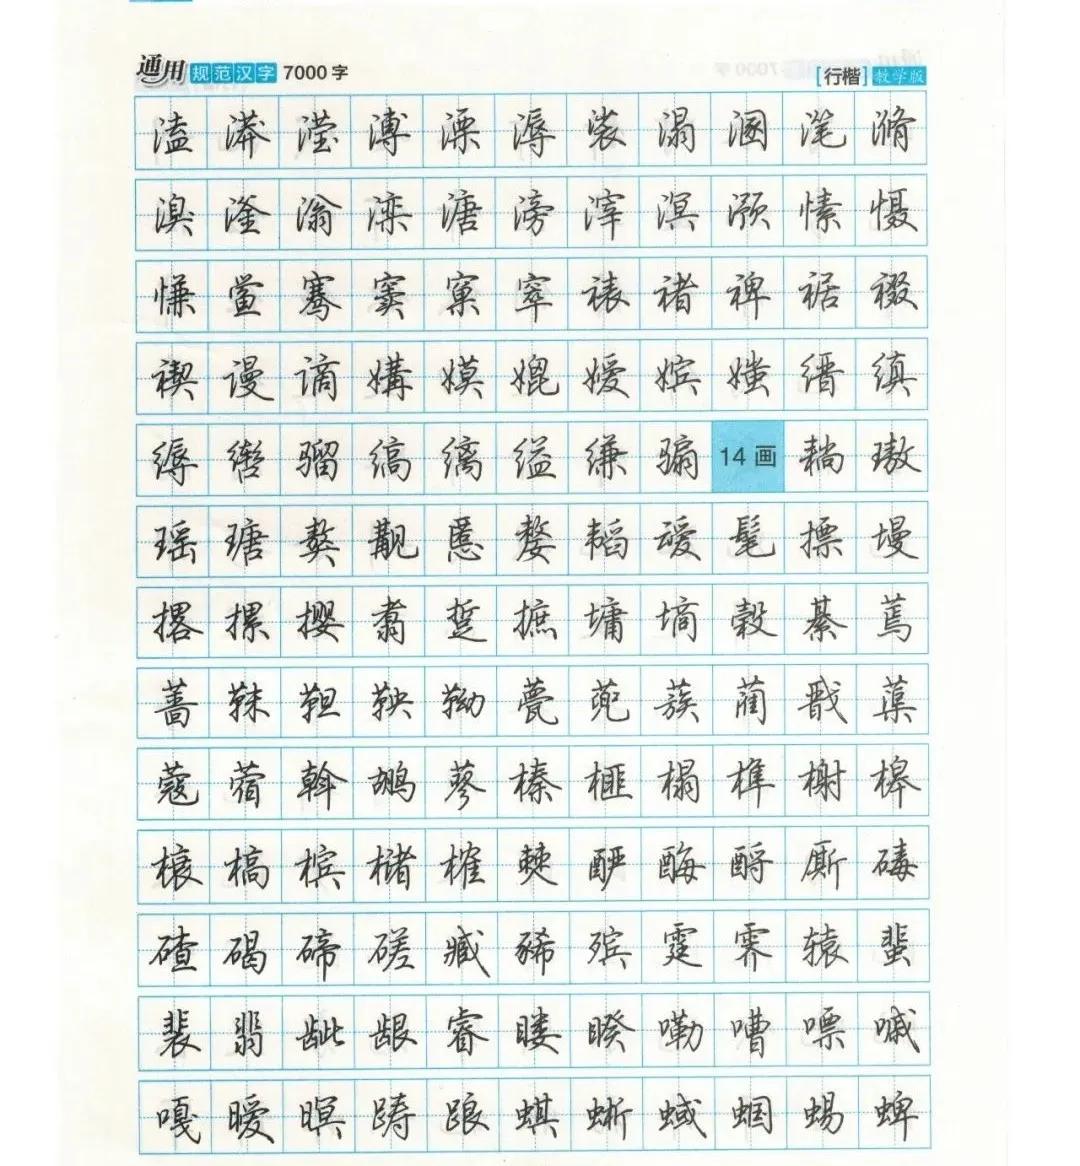 通用规范汉字 7000 字 [行楷] 教学版
溘 漭 滢 溥 溧 溽 裟 溻 溷 滗 滫
溴 滏 滃 滦 溏 滂 滓 溟 滪 愫 慑
慊 鲎 骞 窦 窠 窣 裱 褚 裨 裾 裰
禊 谩 谪 媾 嫫 媲 嫒 嫔 媸 缙 缜
缛 辔 骝 缟 缡 缢 缣 骟 14画 耥 璈
瑶 瑭 獒 觏 慝 嫠 韬 叆 髦 摽 墁
撂 摞 撄 翥 踅 摭 墉 墒 榖 綦 蔫
蔷 靺 靼 鞅 靿 甍 蔸 蔟 蔺 戬 蕖
蔻 蓿 斡 鹕 蓼 榛 榧 榻 榫 榭 槔
榱 槁 槟 槠 榷 僰 酽 酶 酹 厮 碡
碴 碣 碲 磋 臧 豨 殡 霆 霁 辕 蜚
裴 翡 龇 龈 睿 䁖 睽 嘞 嘈 嘌 嘁
嘎 暧 暝 踌 踉 蜞 蜥 蜮 蝈 蜴 蜱